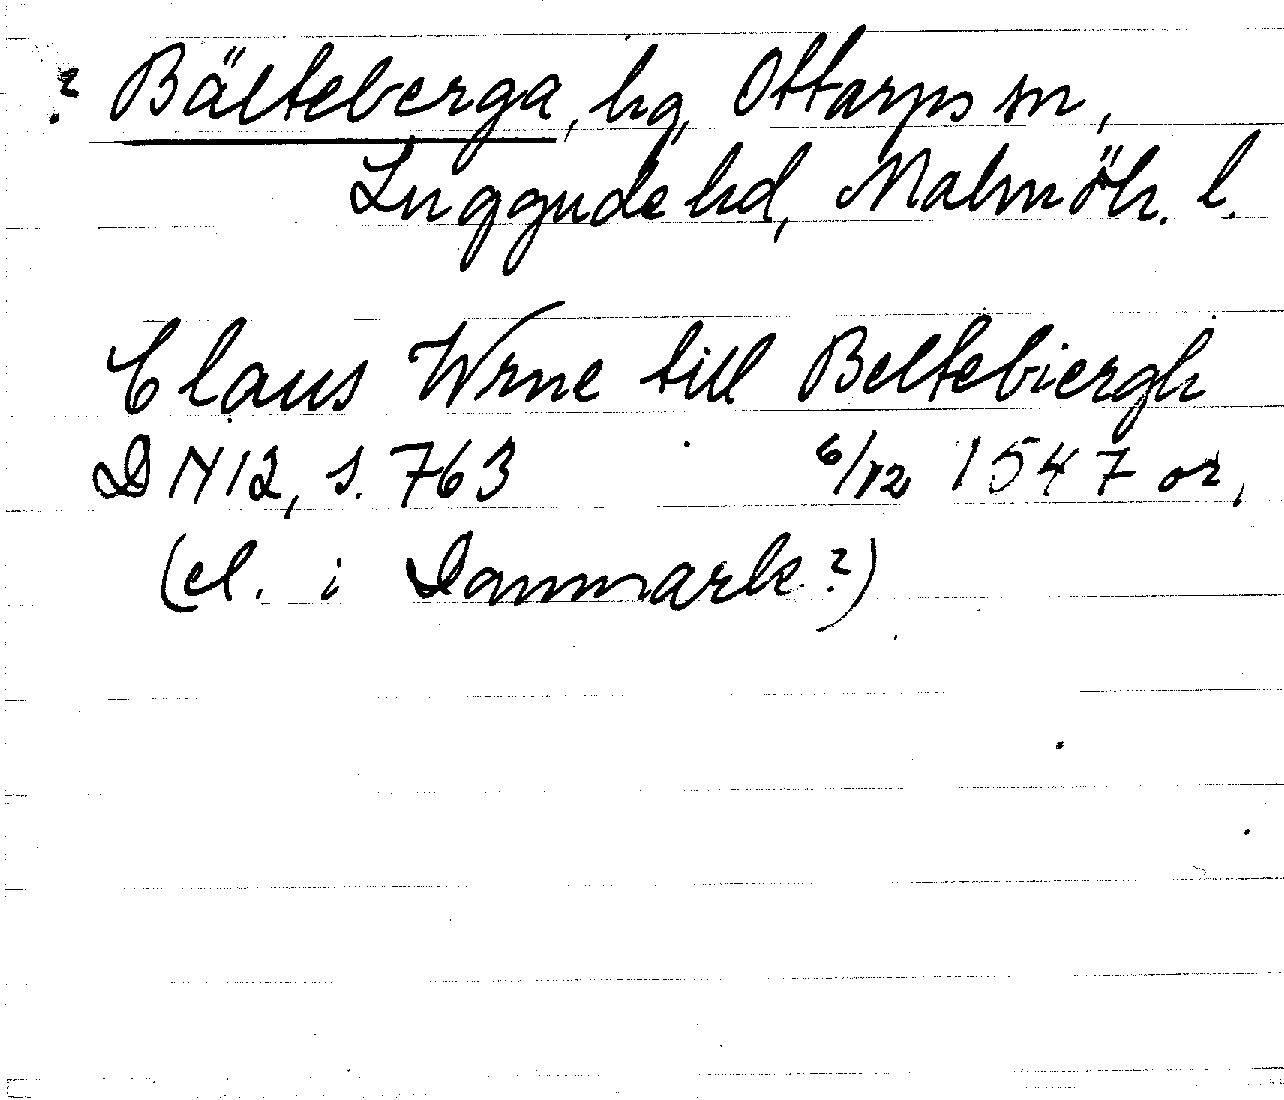 ? Bälteberga, hg, Ottarps sn,
Luggude hd, Malmöh. l.
Claus Wrne till Beltebiergh
DN 12, s. 763 6/12 1547 or,
(el. i Danmark?)